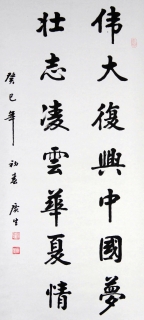 伟大復興中國夢
壮志凌雲華夏情
癸巳年初春